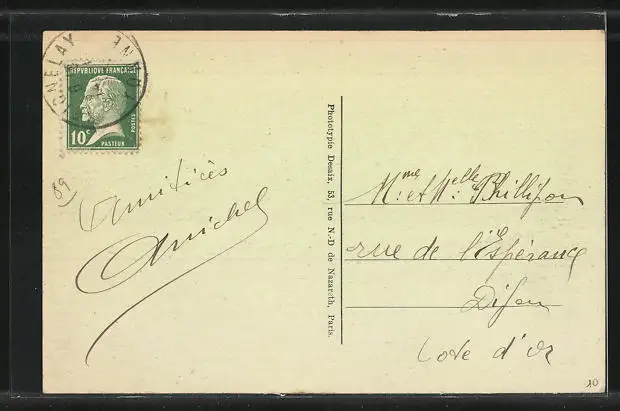 IGNELAY
RÉPUBLIQUE FRANÇAISE
POSTES
10c
PASTEUR
89
Amitiés
Phototypie Desaix, 53, rue N.-D de Nazareth, Paris.
Mme et Melle Phillipon
rue de l'Espérance
Dijon
Cote d'Or
10